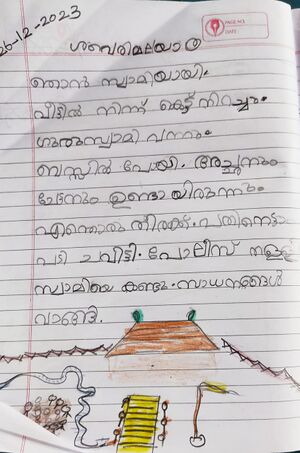 26-12-2023
PAGE NO.
DATE
ശബരിമലയാത്ര
ഞാൻ സ്വാമിയായി.
വീട്ടിൽ നിന്ന് കെട്ട് നിറച്ചും.
ഗുരുസ്വാമി വന്നും.
ബസ്സിൽ പോയി. അച്ഛനും
ചേട്ടനും ഉണ്ടായിരുന്നും
എന്തൊരു തിരക്ക്. പതിനെട്ടാ
പടി ചവിട്ടി. പോലീസ്
സ്വാമിയെ കണ്ടു. സാധനങ്ങൾ
വാങ്ങി.